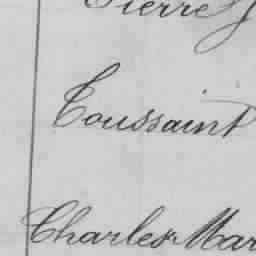 Pierre J
Toussaint
Charles Mar